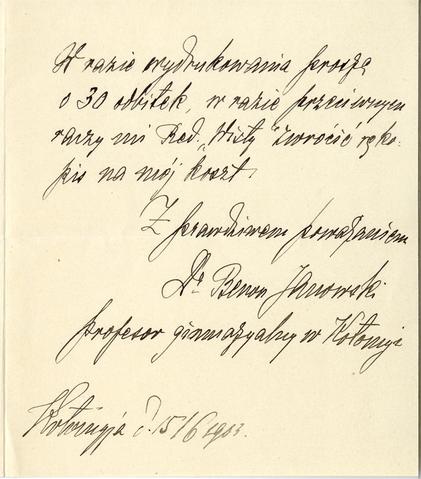 W razie wydrukowania proszę
o 30 odbitek, w razie przeciwnym
raczy mi Red. „Wisły" zwrócić ręko-
pis na mój koszt.
Z prawdziwem poważaniem
Dr Bronon Janowski
profesor gimnazyalny w Kołomyi
Kołomyja d. 15/6 1903.